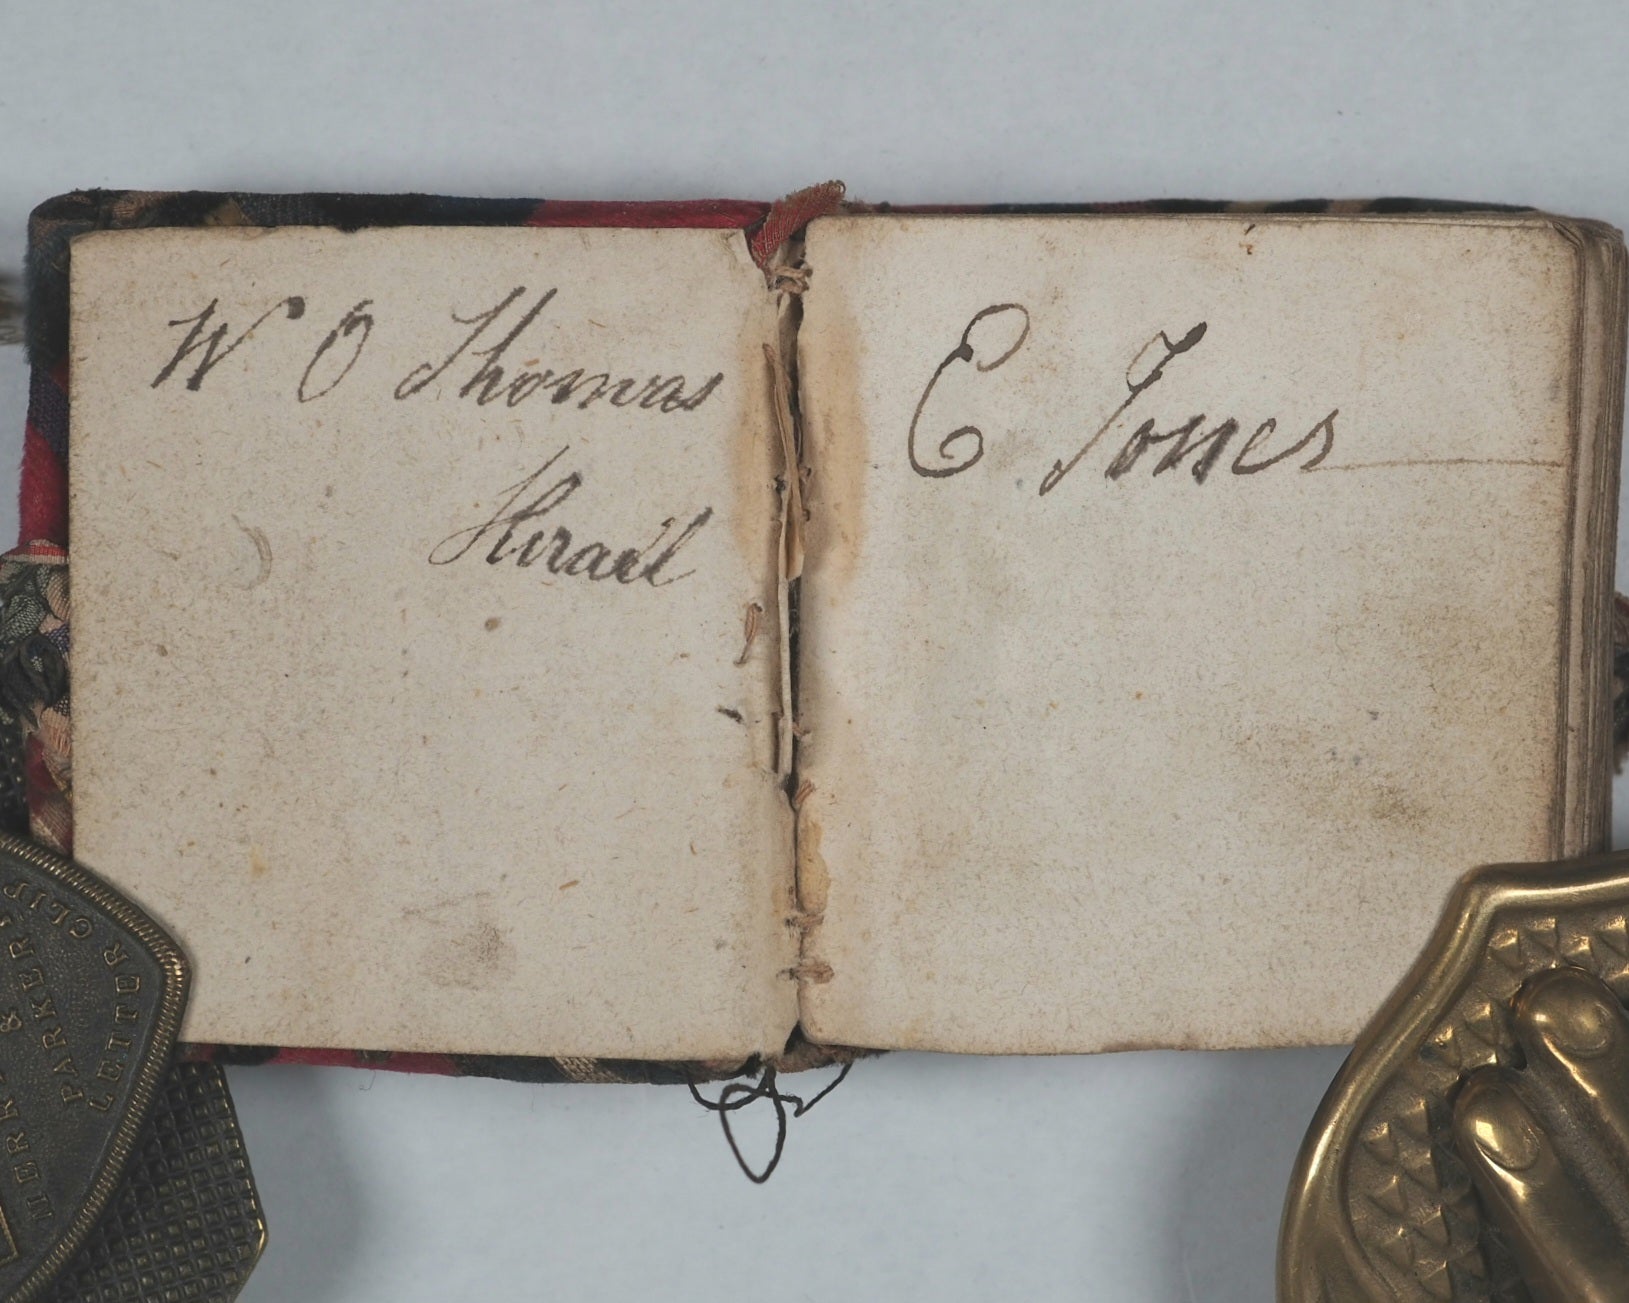 W O Thomas
Hirael
E Jones
PARKER
LETTER CLIP